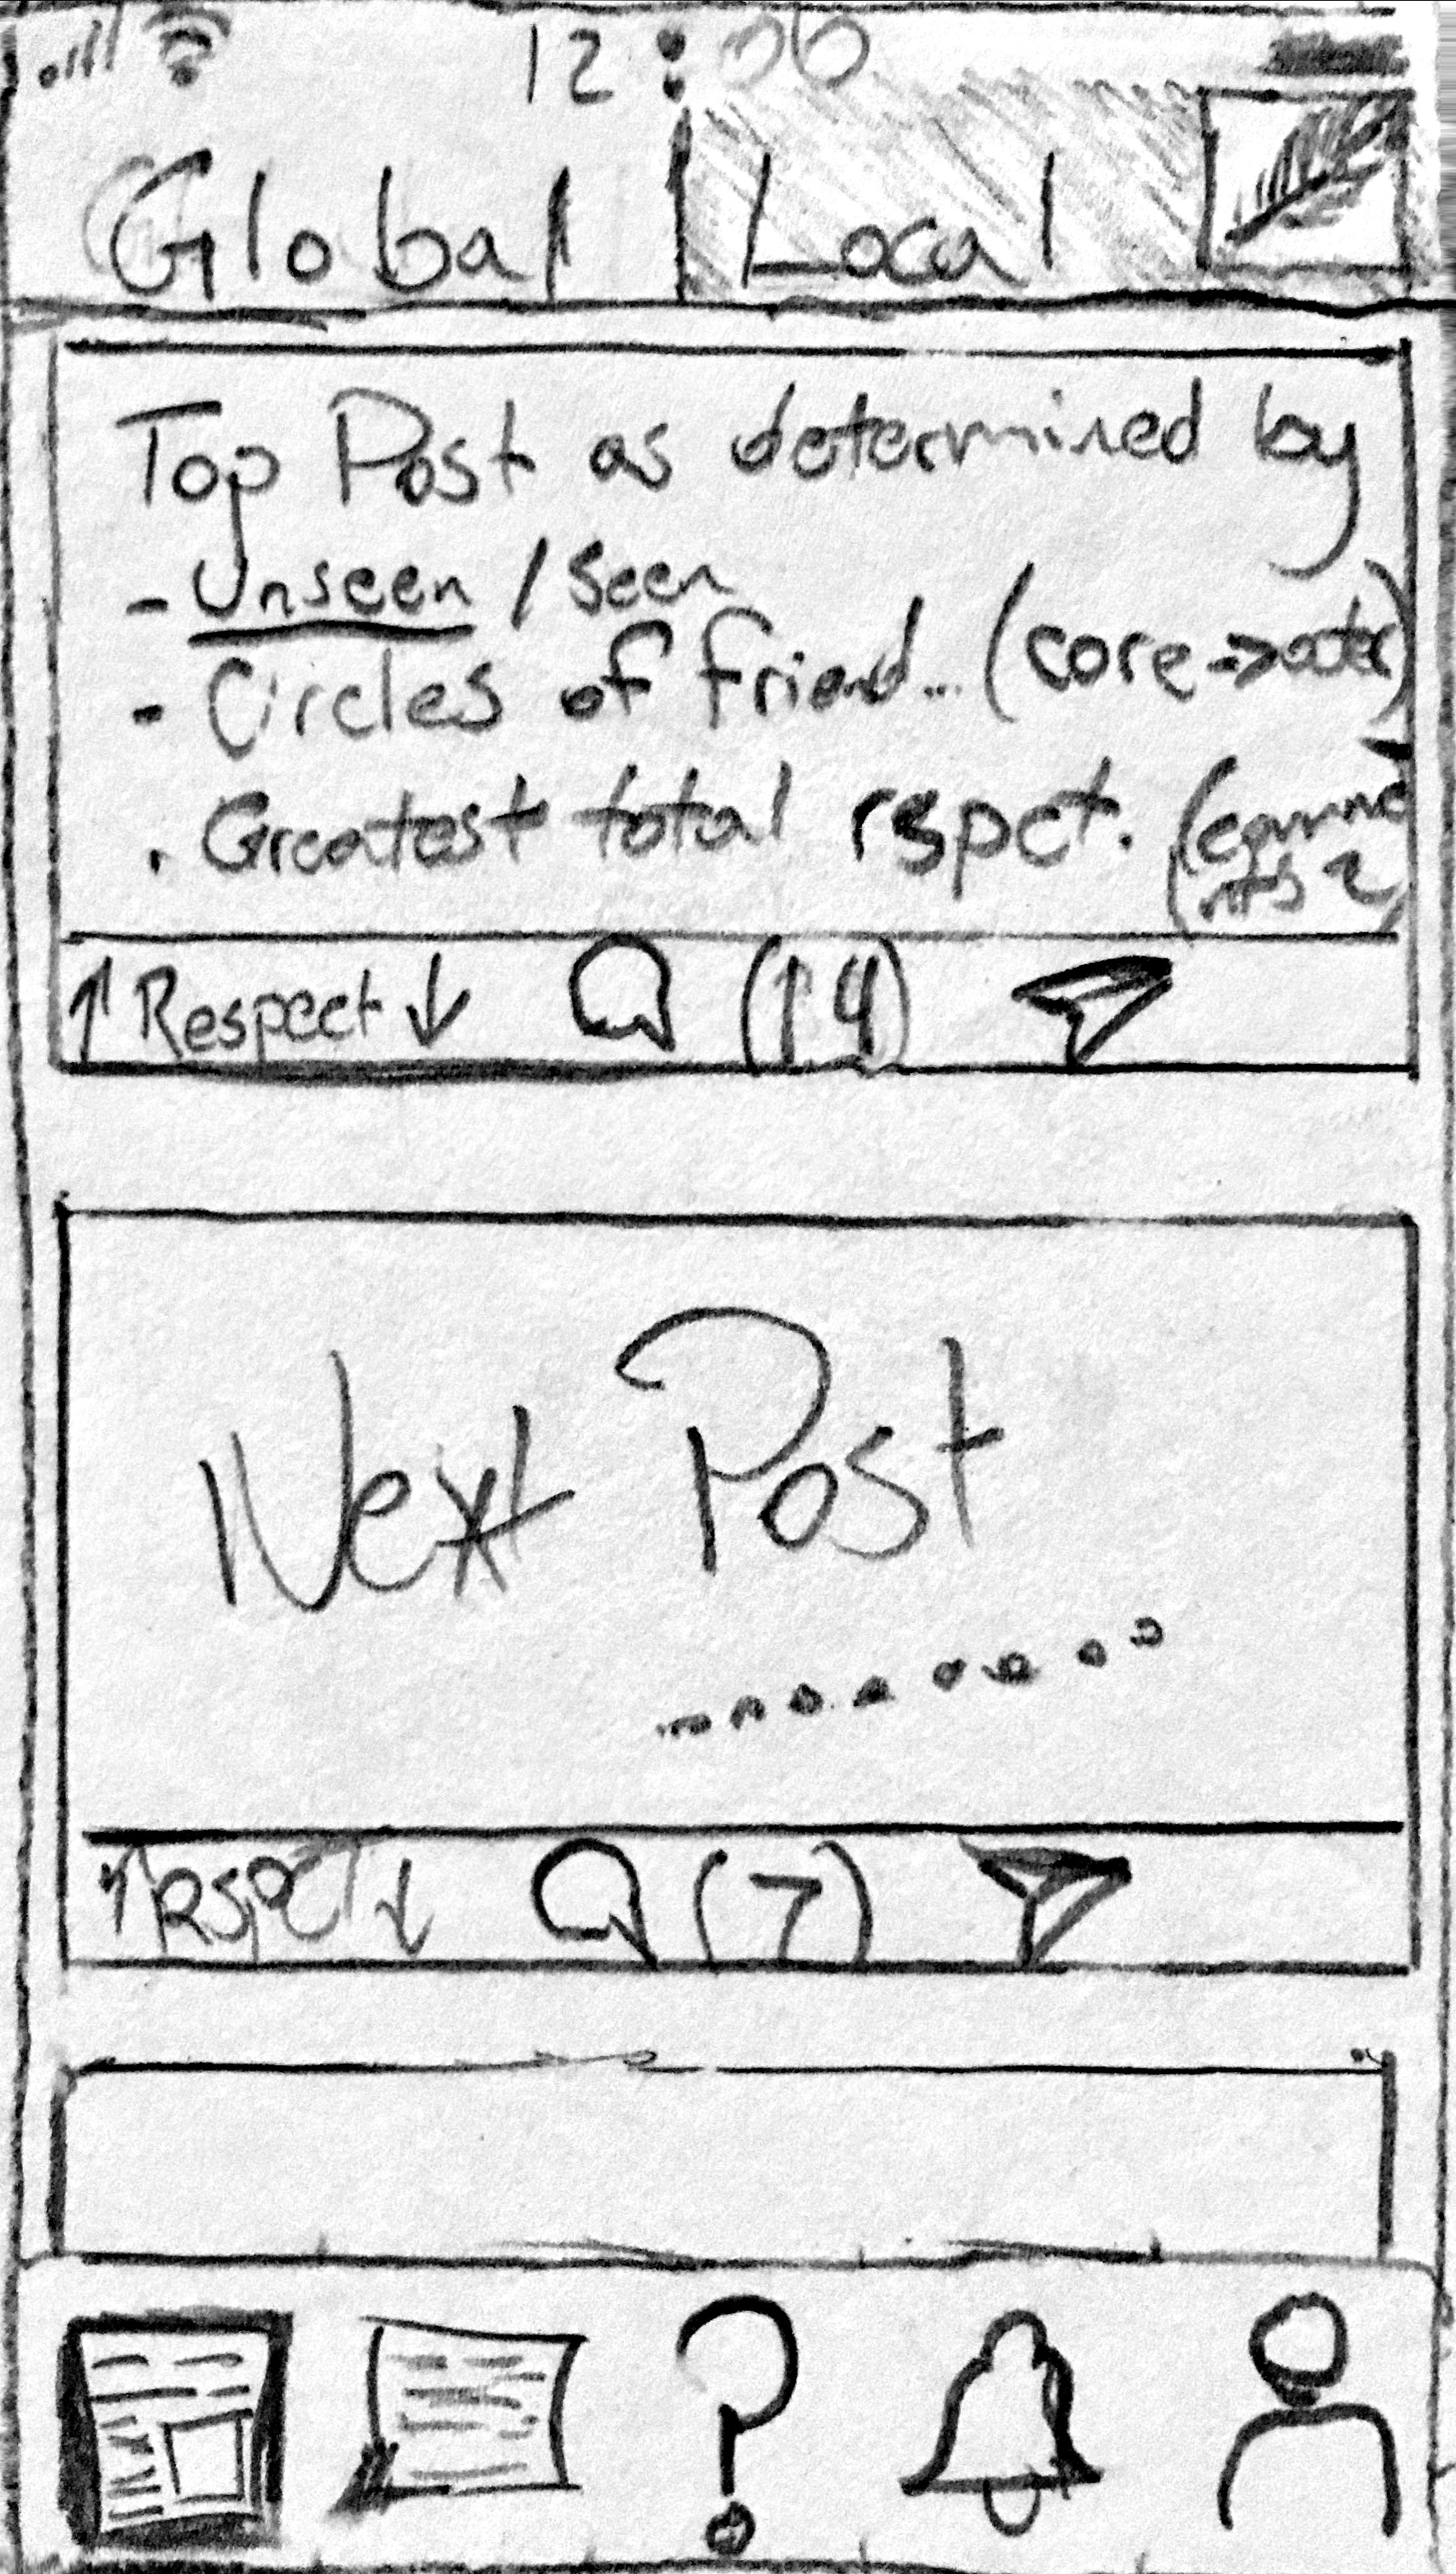 12:06
Global | Local
Top Post as determined by
- Unseen / Seen
- Circles of friend... (core ->outer)
. Greatest total rspct. (comme
nts 2)
↑ Respect ↓ (14)
Next Post
........
↑ RSPCT ↓ (7)
?